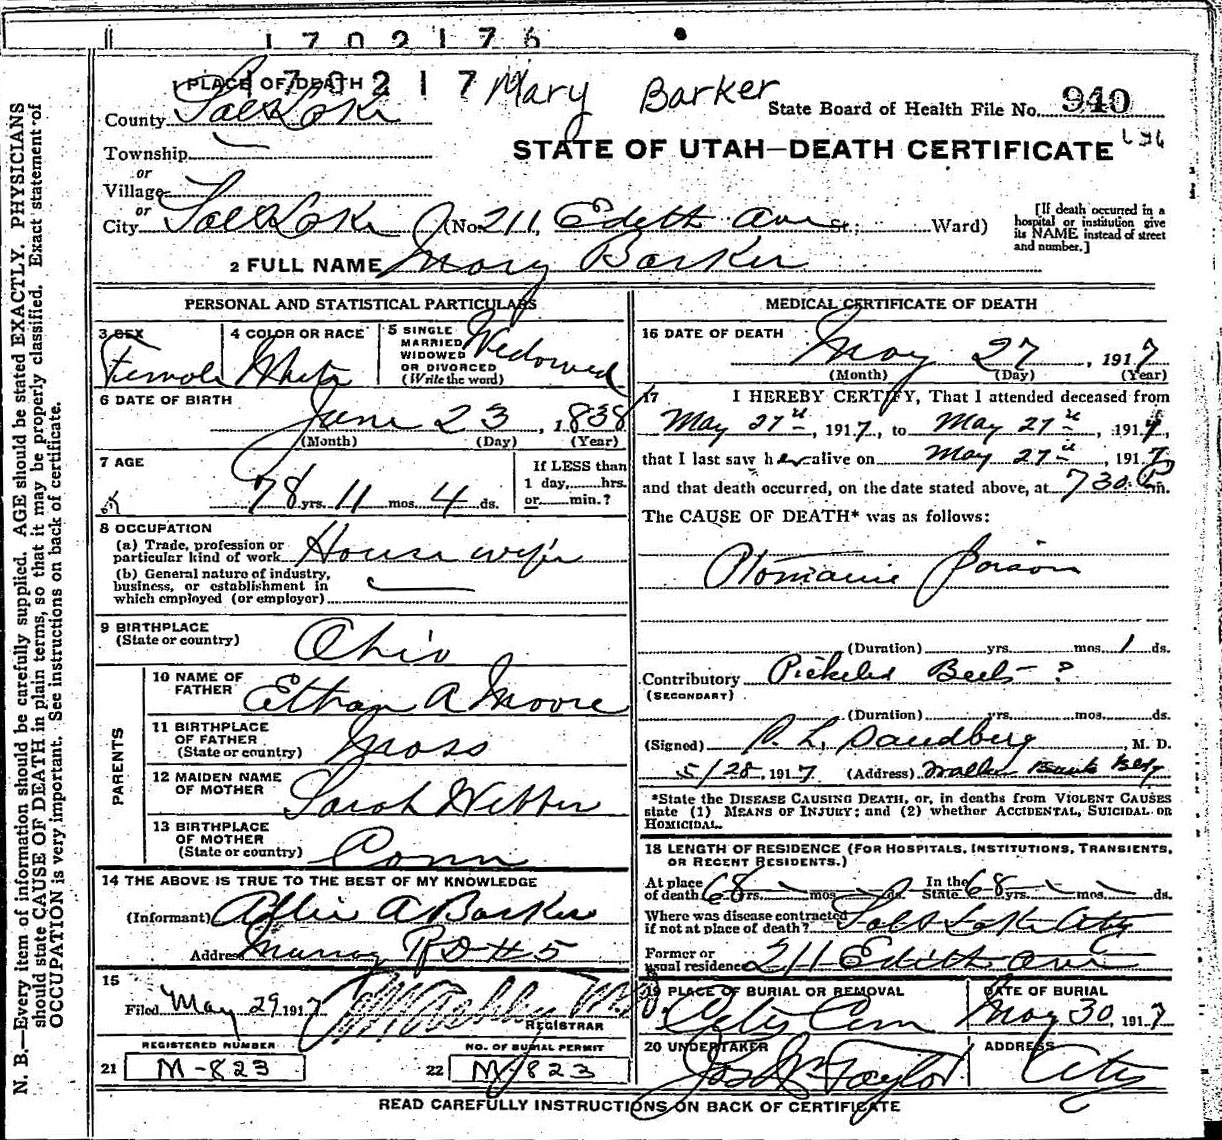 1702176
170217 Mary Barker
1 PLACE OF DEATH
State Board of Health File No. 940
County Salt Lake
Township
STATE OF UTAH—DEATH CERTIFICATE
or
Village
or
City Salt Lake (No. 211, Edith Ave St.; Ward)
[If death occurred in a hospital or institution give its NAME instead of street and number.]
2 FULL NAME Mary Barker
PERSONAL AND STATISTICAL PARTICULARS
3 SEX
Female
4 COLOR OR RACE
White
5 SINGLE
MARRIED
WIDOWED
OR DIVORCED
(Write the word)
Widowed
6 DATE OF BIRTH
June 23, 1838
(Month) (Day) (Year)
7 AGE
78 yrs. 11 mos. 4 ds.
If LESS than
1 day, hrs.
or min.?
8 OCCUPATION
(a) Trade, profession or
particular kind of work House wife
(b) General nature of industry,
business, or establishment in
which employed (or employer)
9 BIRTHPLACE
(State or country)
Ohio
PARENTS
10 NAME OF
FATHER
Ethan A Moore
11 BIRTHPLACE
OF FATHER
(State or country)
Mass
12 MAIDEN NAME
OF MOTHER
Sarah Webber
13 BIRTHPLACE
OF MOTHER
(State or country)
Conn
14 THE ABOVE IS TRUE TO THE BEST OF MY KNOWLEDGE
(Informant) A Barker
Address Murray RD #5
15
Filed May 29 1917
REGISTRAR
REGISTERED NUMBER
21 M-823
NO. OF BURIAL PERMIT
22 M-823
MEDICAL CERTIFICATE OF DEATH
16 DATE OF DEATH
May 27, 1917
(Month) (Day) (Year)
17 I HEREBY CERTIFY, That I attended deceased from
May 27th, 1917, to May 27th, 1917,
that I last saw her alive on May 27th, 1917,
and that death occurred, on the date stated above, at 730 P m.
The CAUSE OF DEATH* was as follows:
Ptomaine Poison
(Duration) yrs. mos. 1 ds.
Contributory Pickeled Beets - ?
(SECONDARY)
(Duration) yrs. mos. ds.
(Signed) P. L. Sandberg, M. D.
5/28, 1917 (Address) Walker Bank Bldg
*State the DISEASE CAUSING DEATH, or, in deaths from VIOLENT CAUSES
state (1) MEANS OF INJURY; and (2) whether ACCIDENTAL, SUICIDAL OR
HOMICIDAL.
18 LENGTH OF RESIDENCE (FOR HOSPITALS, INSTITUTIONS, TRANSIENTS,
OR RECENT RESIDENTS.)
At place
of death 68 yrs. mos. ds.
In the
State 68 yrs. mos. ds.
Where was disease contracted
if not at place of death? Salt Lake City
Former or
usual residence 211 Edith Ave
19 PLACE OF BURIAL OR REMOVAL
City Cem
DATE OF BURIAL
May 30, 1917
20 UNDERTAKER
Jos Wm Taylor
ADDRESS
City
READ CAREFULLY INSTRUCTIONS ON BACK OF CERTIFICATE
N. B.—Every item of information should be carefully supplied. AGE should be stated EXACTLY. PHYSICIANS
should state CAUSE OF DEATH in plain terms, so that it may be properly classified. Exact statement of
OCCUPATION is very important. See instructions on back of certificate.